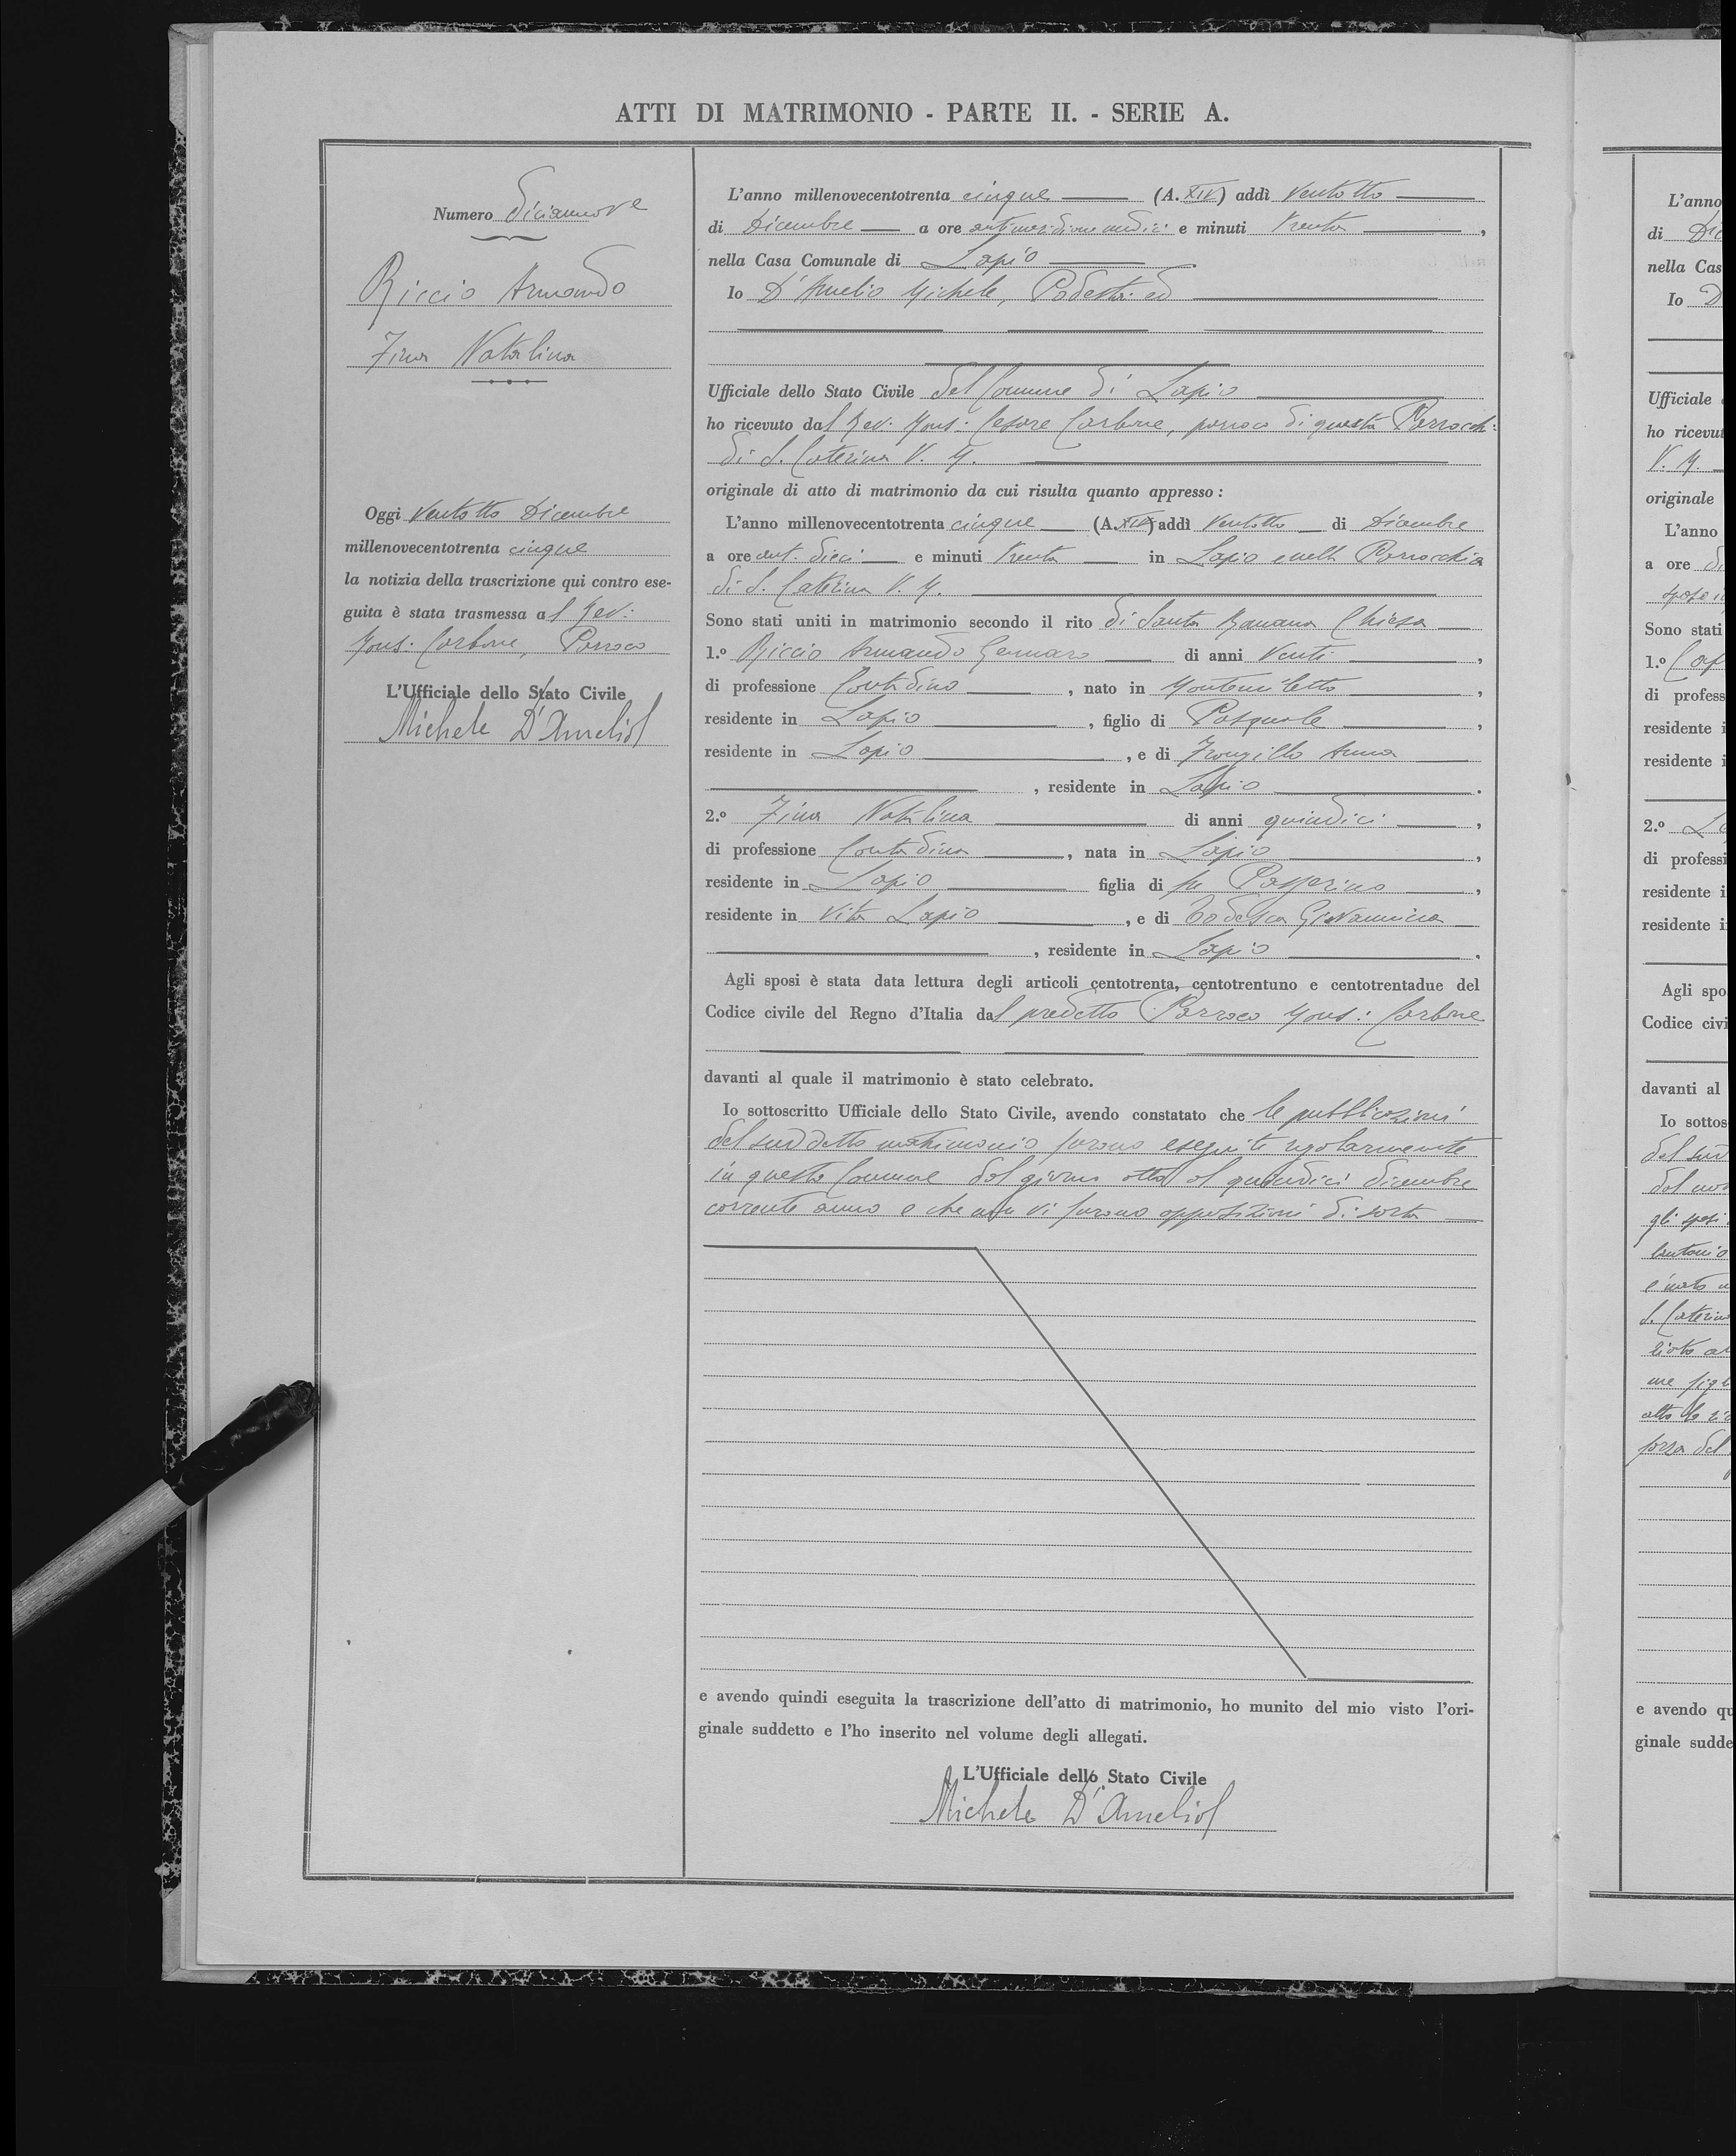 ATTI DI MATRIMONIO - PARTE II. - SERIE A.
Numero Diciannove
Riccio Armando
Fina Natalina
Oggi Ventotto Dicembre
millenovecentotrenta cinque
la notizia della trascrizione qui contro ese-
guita è stata trasmessa al Rev:
Mons: Carbone, Parroco
L'Ufficiale dello Stato Civile
Michele D'Amelio
L'anno millenovecentotrenta cinque (A. XIV) addì Ventotto
di Dicembre a ore antimeridiane undici e minuti trenta,
nella Casa Comunale di Lapio
Io D'Amelio Michele, Podestà ed
Ufficiale dello Stato Civile del Comune di Lapio
ho ricevuto dal Rev. Mons: Cesare Carbone, parroco di questa Parrocch:
di S. Caterina V. M.
originale di atto di matrimonio da cui risulta quanto appresso:
L'anno millenovecentotrenta cinque (A. XIV) addì Ventotto di Dicembre
a ore ant. dieci e minuti trenta in Lapio e nella Parrocchia
di S. Caterina V. M.
Sono stati uniti in matrimonio secondo il rito di Santa Romana Chiesa
1.º Riccio Armando Gennaro di anni Venti,
di professione Contadino, nato in Montemiletto,
residente in Lapio, figlio di Pasquale,
residente in Lapio, e di Frongillo Anna
, residente in Lapio.
2.º Fina Natalina di anni quindici,
di professione Contadina, nata in Lapio,
residente in Lapio figlia di fu Passerino,
residente in vita Lapio, e di Todesca Giovannina
, residente in Lapio.
Agli sposi è stata data lettura degli articoli centotrenta, centotrentuno e centotrentadue del
Codice civile del Regno d'Italia dal predetto Parroco Mons: Carbone
davanti al quale il matrimonio è stato celebrato.
Io sottoscritto Ufficiale dello Stato Civile, avendo constatato che le pubblicazioni
del suddetto matrimonio furono eseguite regolarmente
in questo Comune dal giorno otto al quindici dicembre
corrente anno e che non vi furono opposizioni di sorta
e avendo quindi eseguita la trascrizione dell'atto di matrimonio, ho munito del mio visto l'ori-
ginale suddetto e l'ho inserito nel volume degli allegati.
L'Ufficiale dello Stato Civile
Michele D'Amelio
L'anno
di Dic
nella Cas
Io D
Ufficiale
ho ricevut
V. M.
originale
L'anno
a ore
Sono stati
1.º
di profess
residente i
residente i
2.º
di professi
residente i
residente i
Agli spo
Codice civi
davanti al
Io sottos
e avendo qu
ginale sudde